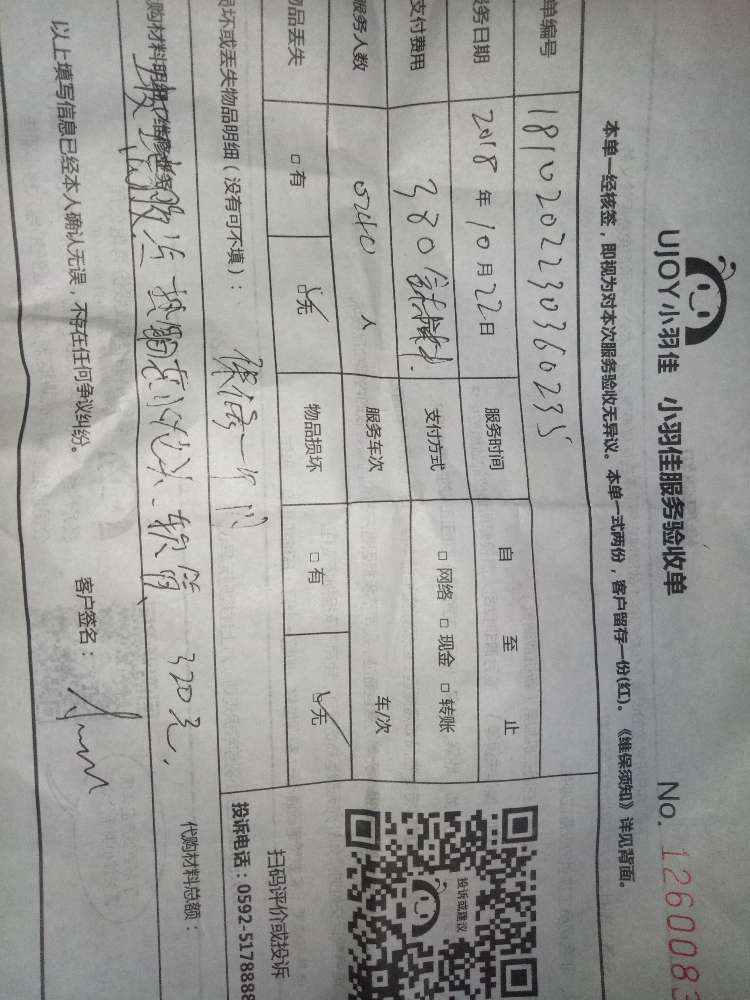 UJOY小羽佳 小羽佳服务验收单
No. 1260083
本单一经核签，即视为对本次服务验收无异议。本单一式两份，客户留存一份(红)。《维保须知》详见背面。
单编号 1810202230360235
服务日期 2018年10月22日 服务时间 自 至 止
支付费用 380 支付方式 □网络 □现金 □转账
服务人数 人 服务车次 车/次
物品丢失 □有 □无 物品损坏 □有 □无
损坏或丢失物品明细（没有可不填）：
保修一个月
购材料明细
软管 320元，
代购材料总额：
以上填写信息已经本人确认无误，不存在任何争议纠纷。
客户签名：
投诉或建议
扫码评价或投诉
投诉电话：0592-5178888